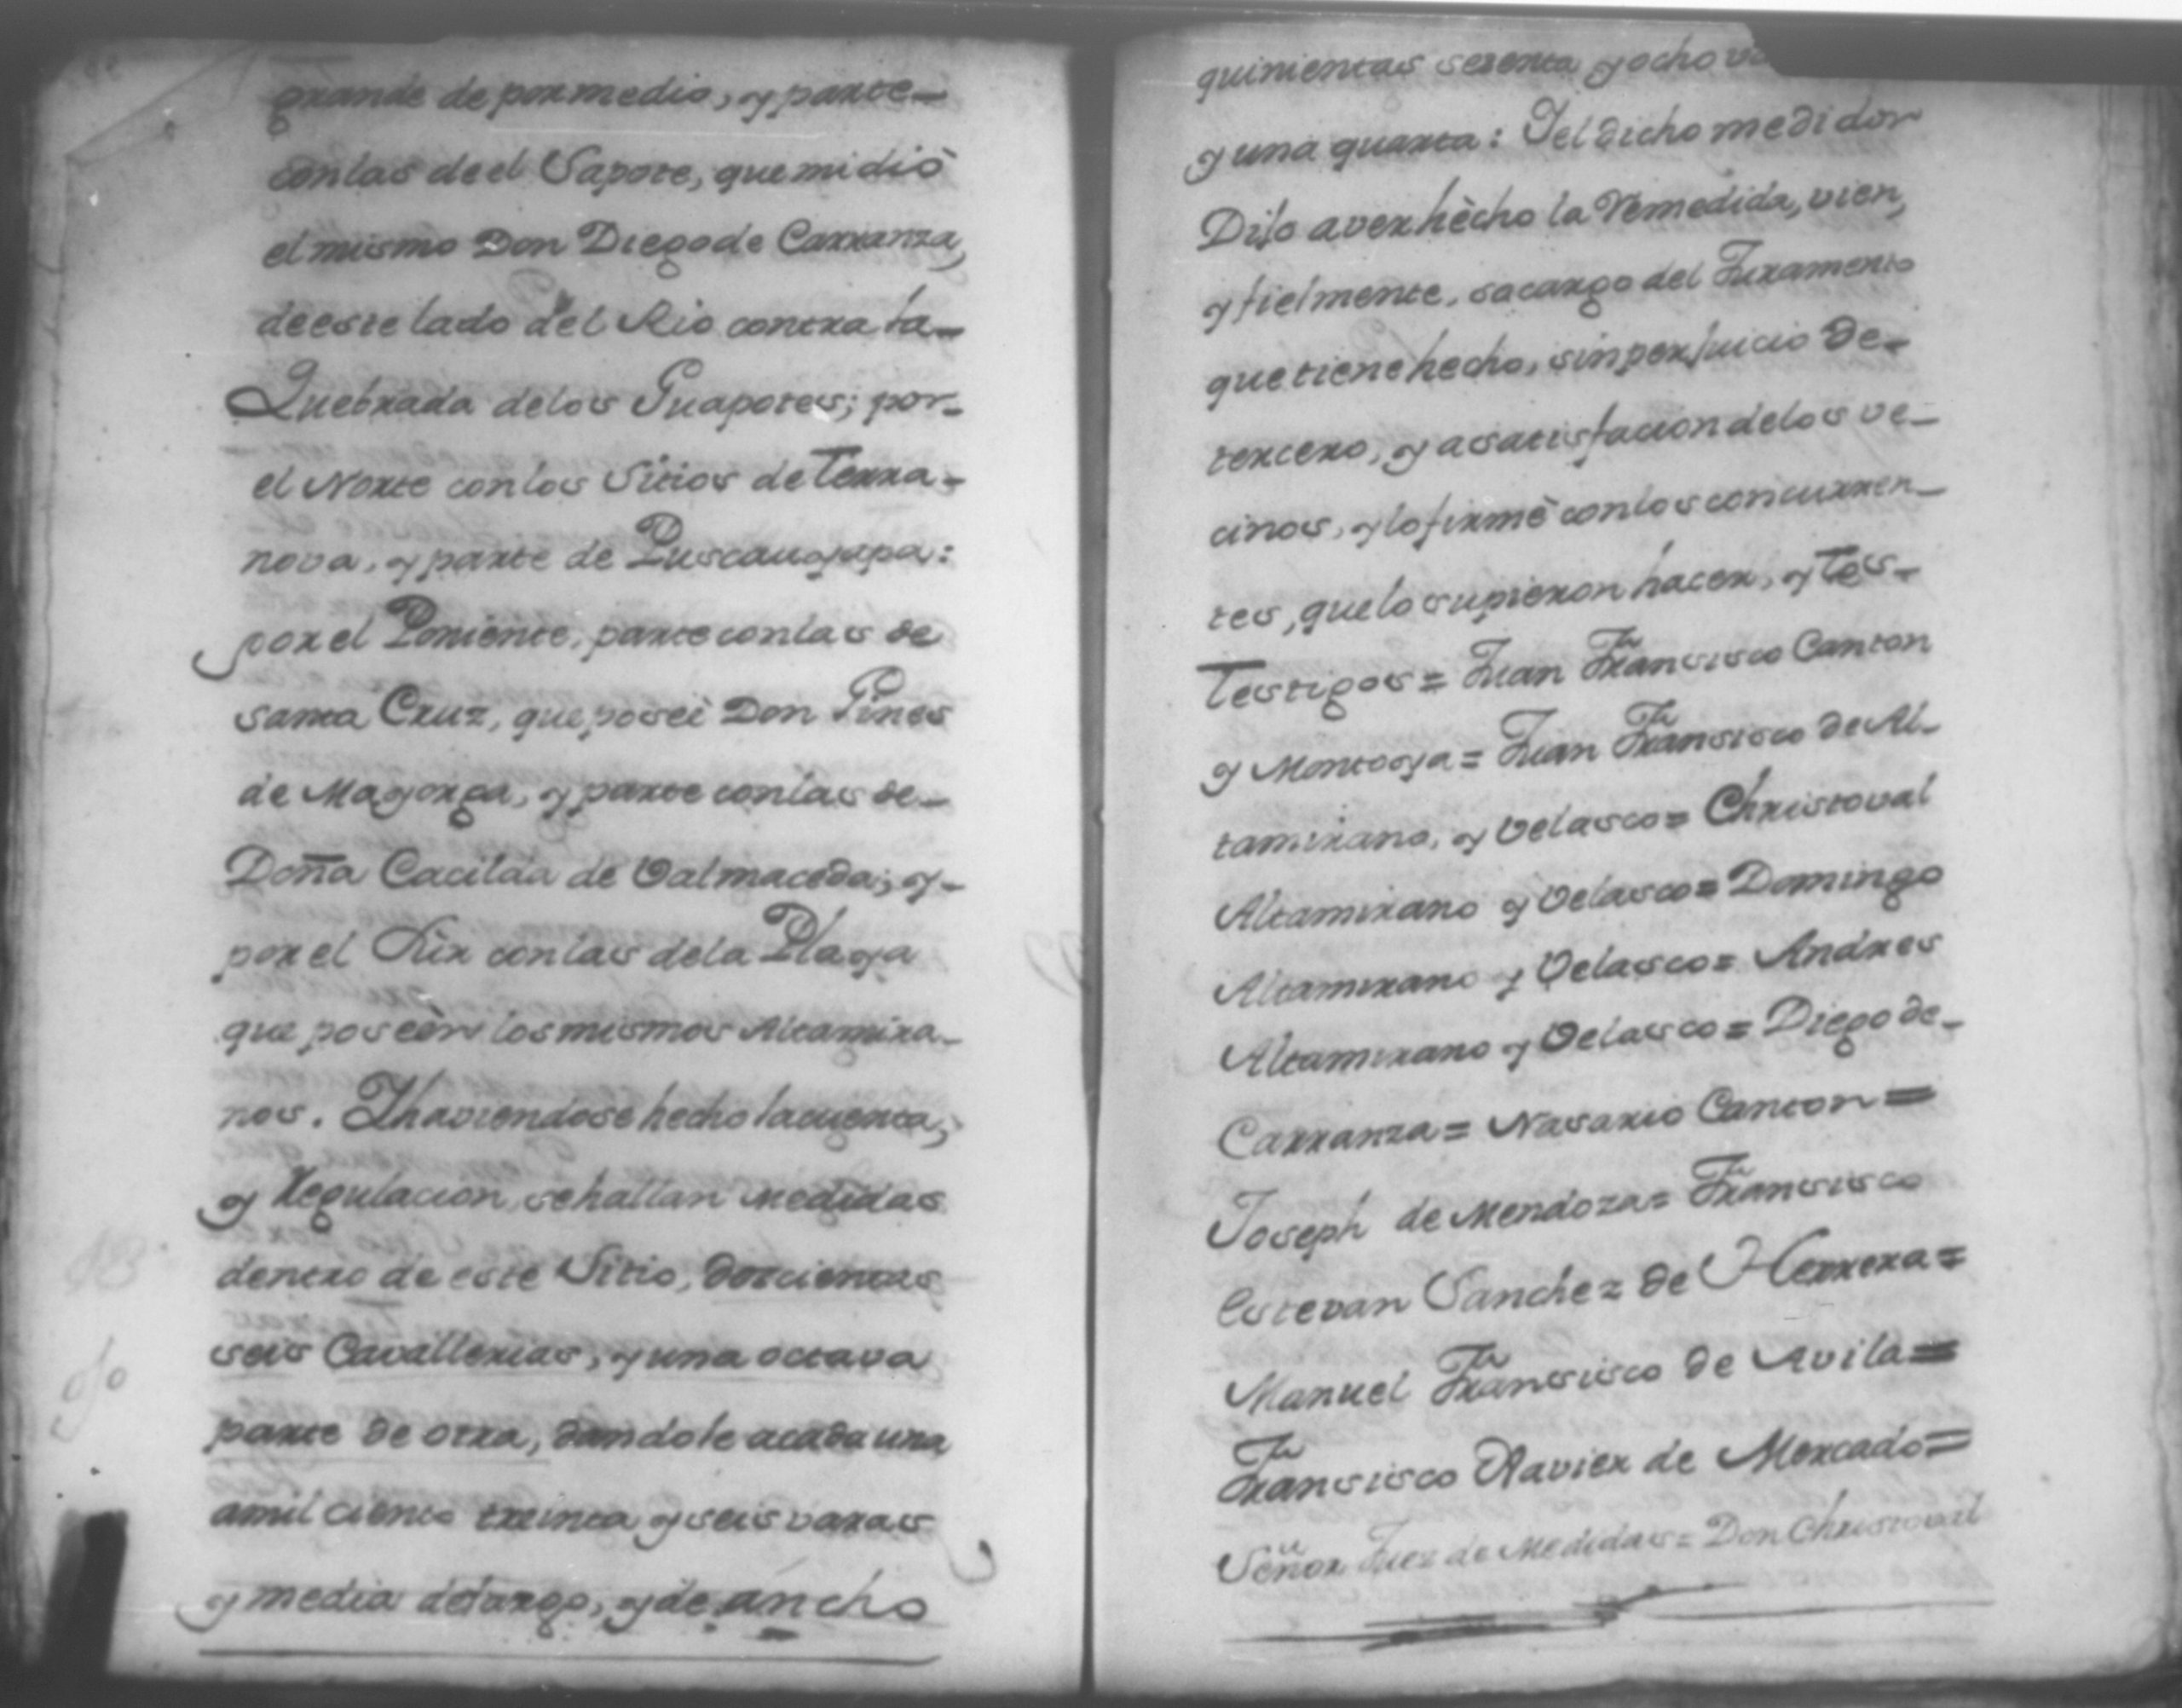 grande de por medio, y parte-
con las de el Sapote, que midiò
el mismo Don Diego de Carranza,
de este lado del Rio contra la-
Quebrada de los Guapotes; por-
el Norte con los Sitios de Terra-
nova, y parte de Puscauyapa:
por el Poniente, parte con las de
santa Cruz, que poseè Don Gines
de Mayorga, y parte con las de-
Doña Cacilda de Valmaceda; y-
por el Sur con las de la Playa
que poseèn los mismos Altamira-
nos. Y haviendose hecho la cuenta,
y Regulacion, se hallan medidas
dentro de este Sitio, doscientas
seis Cavallerias, y una octava
parte de otra, dandole a cada una
a mil ciento treinta y seis varas
y media de largo, y de ancho
quinientas sesenta y ocho
y una quarta: Y el dicho medidor
Dijo aver hècho la Remedida, vien,
y fielmente, so cargo del Juramento
que tiene hecho, sin perjuicio de-
tercero, y a satisfacion de los ve-
cinos, y lo firmè con los concurren-
tes, que lo supieron hacer, y Tes-
Testigos = Juan Fransisco Canton
y Montoya = Juan Fransisco de Al-
tamirano, y Velasco = Christoval
Altamirano y Velasco = Domingo
Altamirano y Velasco = Andres
Altamirano y Velasco = Diego de-
Carranza = Nasario Canton =
Joseph de Mendoza = Fransisco
Estevan Sanchez de Herrera =
Manuel Fransisco de Avila =
Fransisco Xavier de Mercado =
Señor Juez de Medidas = Don Christoval